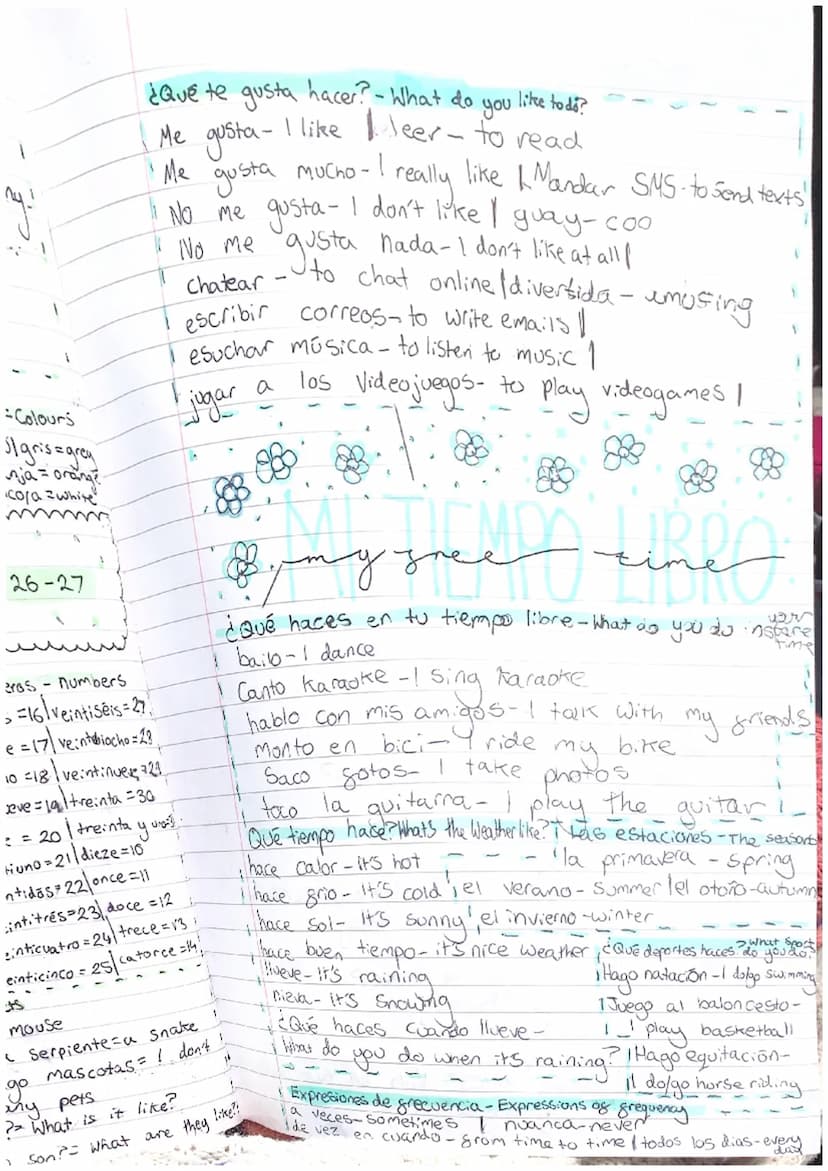 ¿Qué te gusta hacer? - What do you like to do?
Me gusta - I like | leer - to read
Me gusta mucho - I really like | Mandar SMS - to send texts
No me gusta - I don't like | guay - coo
No me gusta nada - I don't like at all |
chatear - to chat online | divertida - amusing
escribir correos - to write emails |
esuchar música - to listen to music |
jugar a los videojuegos - to play videogames |
MI TIEMPO LIBRO:
my free time
¿Qué haces en tu tiempo libre - What do you do in your spare time
bailo - I dance
Canto Karaoke - I sing Karaoke
hablo con mis amigos - I talk with my friends
Monto en bici - I ride my bike
Saco fotos - I take photos
toco la guitarra - I play the guitar
Qué tiempo hace? What's the Weather like? | Las estaciones - The seasons
hace calor - it's hot | la primavera - spring
hace frio - It's cold | el verano - summer | el otoño - autumn
hace sol - It's sunny | el invierno - winter
hace buen tiempo - it's nice weather
llueve - it's raining
nieva - it's snowing
¿Qué haces cuando llueve -
What do you do when it's raining?
¿Qué deportes haces? What sport do you do?
Hago natación - I do/go swimming
Juego al baloncesto -
I play basketball
Hago equitación -
I do/go horse riding
Expresiones de frecuencia - Expressions of frequency
a veces - sometimes | nuanca - never
de vez en cuándo - from time to time | todos los dias - every day
= Colours
gris = grey
= orange
= white
26 - 27
- numbers
= 16 | veintiséis = 27
= 17 | veintiocho = 28
= 18 | veintinueve = 29
= 19 | treinta = 30
= 20 | treinta y uno = 31
= 21 | dieze = 10
= 22 | once = 11
= 23 | doce = 12
= 24 | trece = 13
= 25 | catorce = 14
mouse
serpiente = a snake
mascotas = I don't
my pets
? = What is it like?
son? = What are they like?